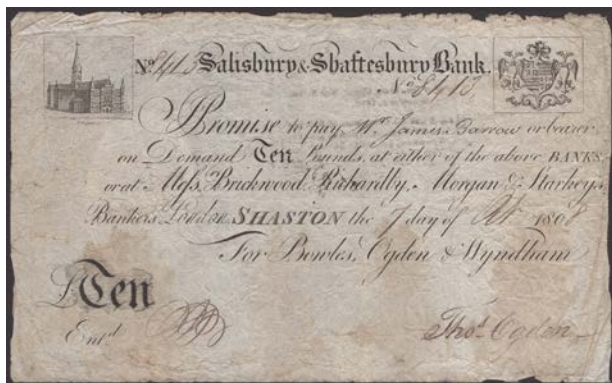 No. 8413 Salisbury & Shaftesbury Bank.
No. 8413
Promise to pay Mr. James Barrow or bearer
on Demand Ten Pounds, at either of the above BANKS
or at Mess. Brickwood, Morgan & Starkey,
Bankers London. SHASTON the 7 day of 180
For Bowles, Ogden & Wyndham
£Ten
Entd.
Thos. Ogden